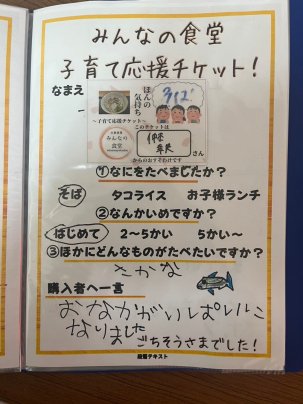 みんなの食堂
子育て応援チケット!
なまえ
ほんの
気持ち
~子育て応援チケット~
このチケットは
みんなの
食堂
さん
からのおすそわけです
①なにをたべましたか?
そば タコライス お子様ランチ
②なんかいめですか?
はじめて 2~5かい 5かい~
③ほかにどんなものがたべたいですか?
さかな
購入者へ一言
おなかがいぱいに
なりました
ごちそうさまでした!